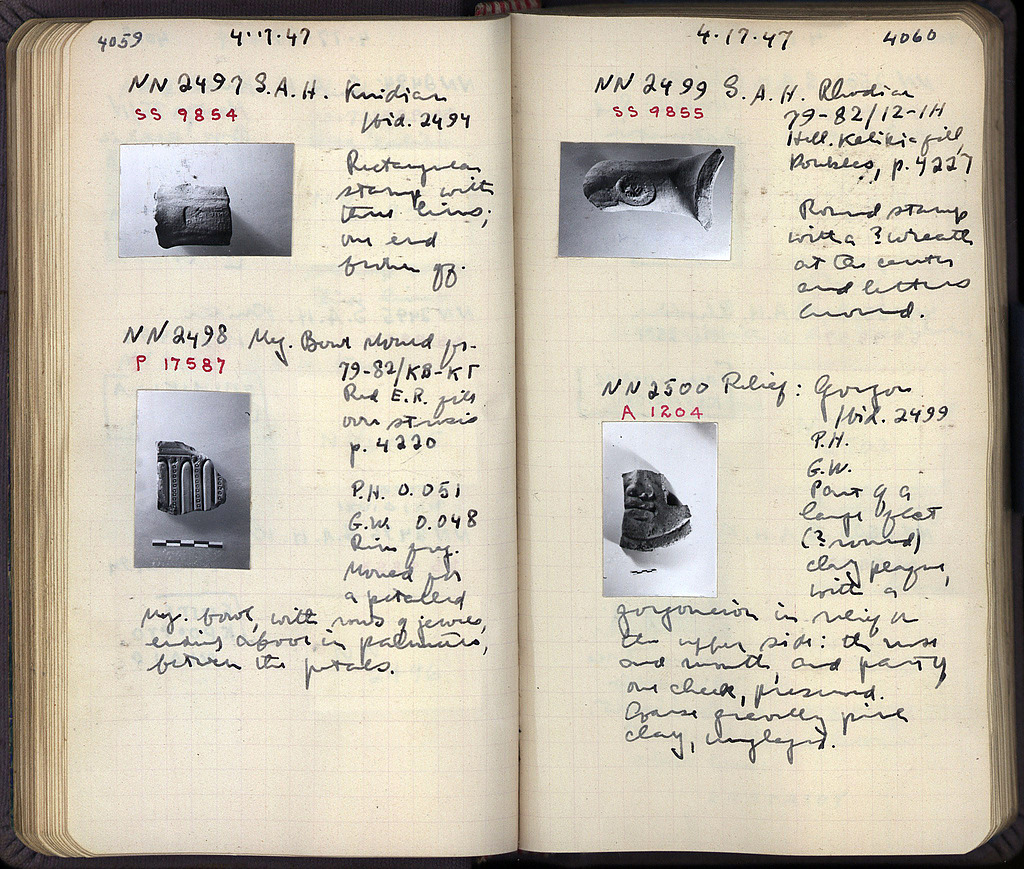 4059
4·17·47
NN 2497 S.A.H. Knidian
SS 9854
Ibid. 2494
Rectangular
stamp with
three lines;
one end
broken off.
NN 2498 Meg. Bowl Mould fr.
P 17587
79-82/ΚΒ-ΚΓ
Red E.R. fill
over stosis
p. 4220
P.H. 0.051
G.W. 0.048
Rim frag.
Mould for
a petalled
Meg. bowl, with rows of jewels,
ending above in palmettes,
between the petals.
4·17·47
4060
NN 2499 S.A.H. Rhodian
SS 9855
79-82/12-1H
Hell. fill,
p. 4227
Round stamp
with a ? wreath
at the center
and letters
around.
NN 2500 Relief: Gorgon
A 1204
Ibid. 2499
P.H.
G.W.
Part of a
large flat
(? round)
clay plaque,
with a
gorgoneion in relief on
the upper side: the nose
and mouth, and part of
one cheek, preserved.
Coarse gravelly pink
clay, unglazed.